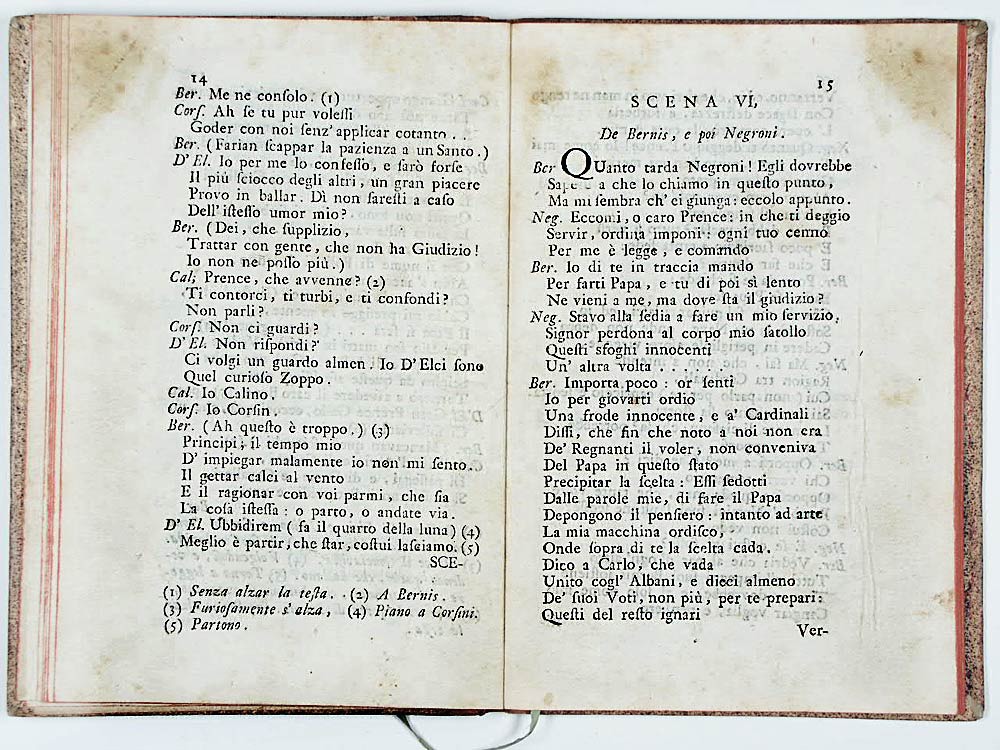 14
Ber. Me ne conſolo. (1)
Corſ. Ah ſe tu pur voleſſi
Goder con noi ſenz' applicar cotanto.
Ber. (Farian ſcappar la pazienza a un Santo.)
D' El. Io per me lo confeſſo, e ſarò forſe
Il più ſciocco degli altri, un gran piacere
Provo in ballar. Di non fareſti a caſo
Dell' iſteſſo umor mio?
Ber. (Dei, che ſupplizio,
Trattar con gente, che non ha Giudizio!
Io non ne poſſo più.)
Cal. Prence, che avvenne? (2)
Ti contorci, ti turbi, e ti confondi?
Non parli?
Corſ. Non ci guardi?
D' El. Non riſpondi?
Ci volgi un guardo almen. Io D' Elci ſono
Quel curioſo Zoppo.
Cal. Io Calino.
Corſ. Io Corſin.
Ber. (Ah queſto è troppo.) (3)
Principi, il tempo mio
D' impiegar malamente io non mi ſento.
Il gettar calci al vento
E il ragionar con voi parmi, che ſia
La coſa iſteſſa: o parto, o andate via.
D' El. Ubbidirem (fa il quarto della luna) (4)
Meglio è partir, che ſtar, coſtui laſciamo. (5)
SCE-
(1) Senza alzar la teſta. (2) A Bernis.
(3) Furioſamente s' alza, (4) Piano a Corſini.
(5) Partono.
15
SCENA VI,
De Bernis, e poi Negroni.
Ber QUanto tarda Negroni! Egli dovrebbe
a che lo chiamo in queſto punto,
Ma mi ſembra ch' ei giunga: eccolo appunto.
Neg. Eccomi, o caro Prence: in che ti deggio
Servir, ordina imponi: ogni tuo cenno
Per me è legge, e comando
Ber. Io di te in traccia mando
Per farti Papa, e tu di poi sì lento
Ne vieni a me, ma dove ſta il giudizio?
Neg. Stavo alla ſedia a fare un mio ſervizio,
Signor perdona al corpo mio ſatollo
Queſti sfoghi innocenti
Un' altra volta . . .
Ber. Importa poco: or ſenti
Io per giovarti ordio
Una frode innocente, e a' Cardinali
Diſſi, che fin che noto a noi non era
De' Regnanti il voler, non conveniva
Del Papa in queſto ſtato
Precipitar la ſcelta: Eſſi ſedotti
Dalle parole mie, di fare il Papa
Depongono il penſiero: intanto ad arte
La mia macchina ordiſco,
Onde ſopra di te la ſcelta cada.
Dico a Carlo, che vada
Unito cogl' Albani, e dieci almeno
De' ſuoi Voti, non più, per te prepari:
Queſti del reſto ignari
Ver-